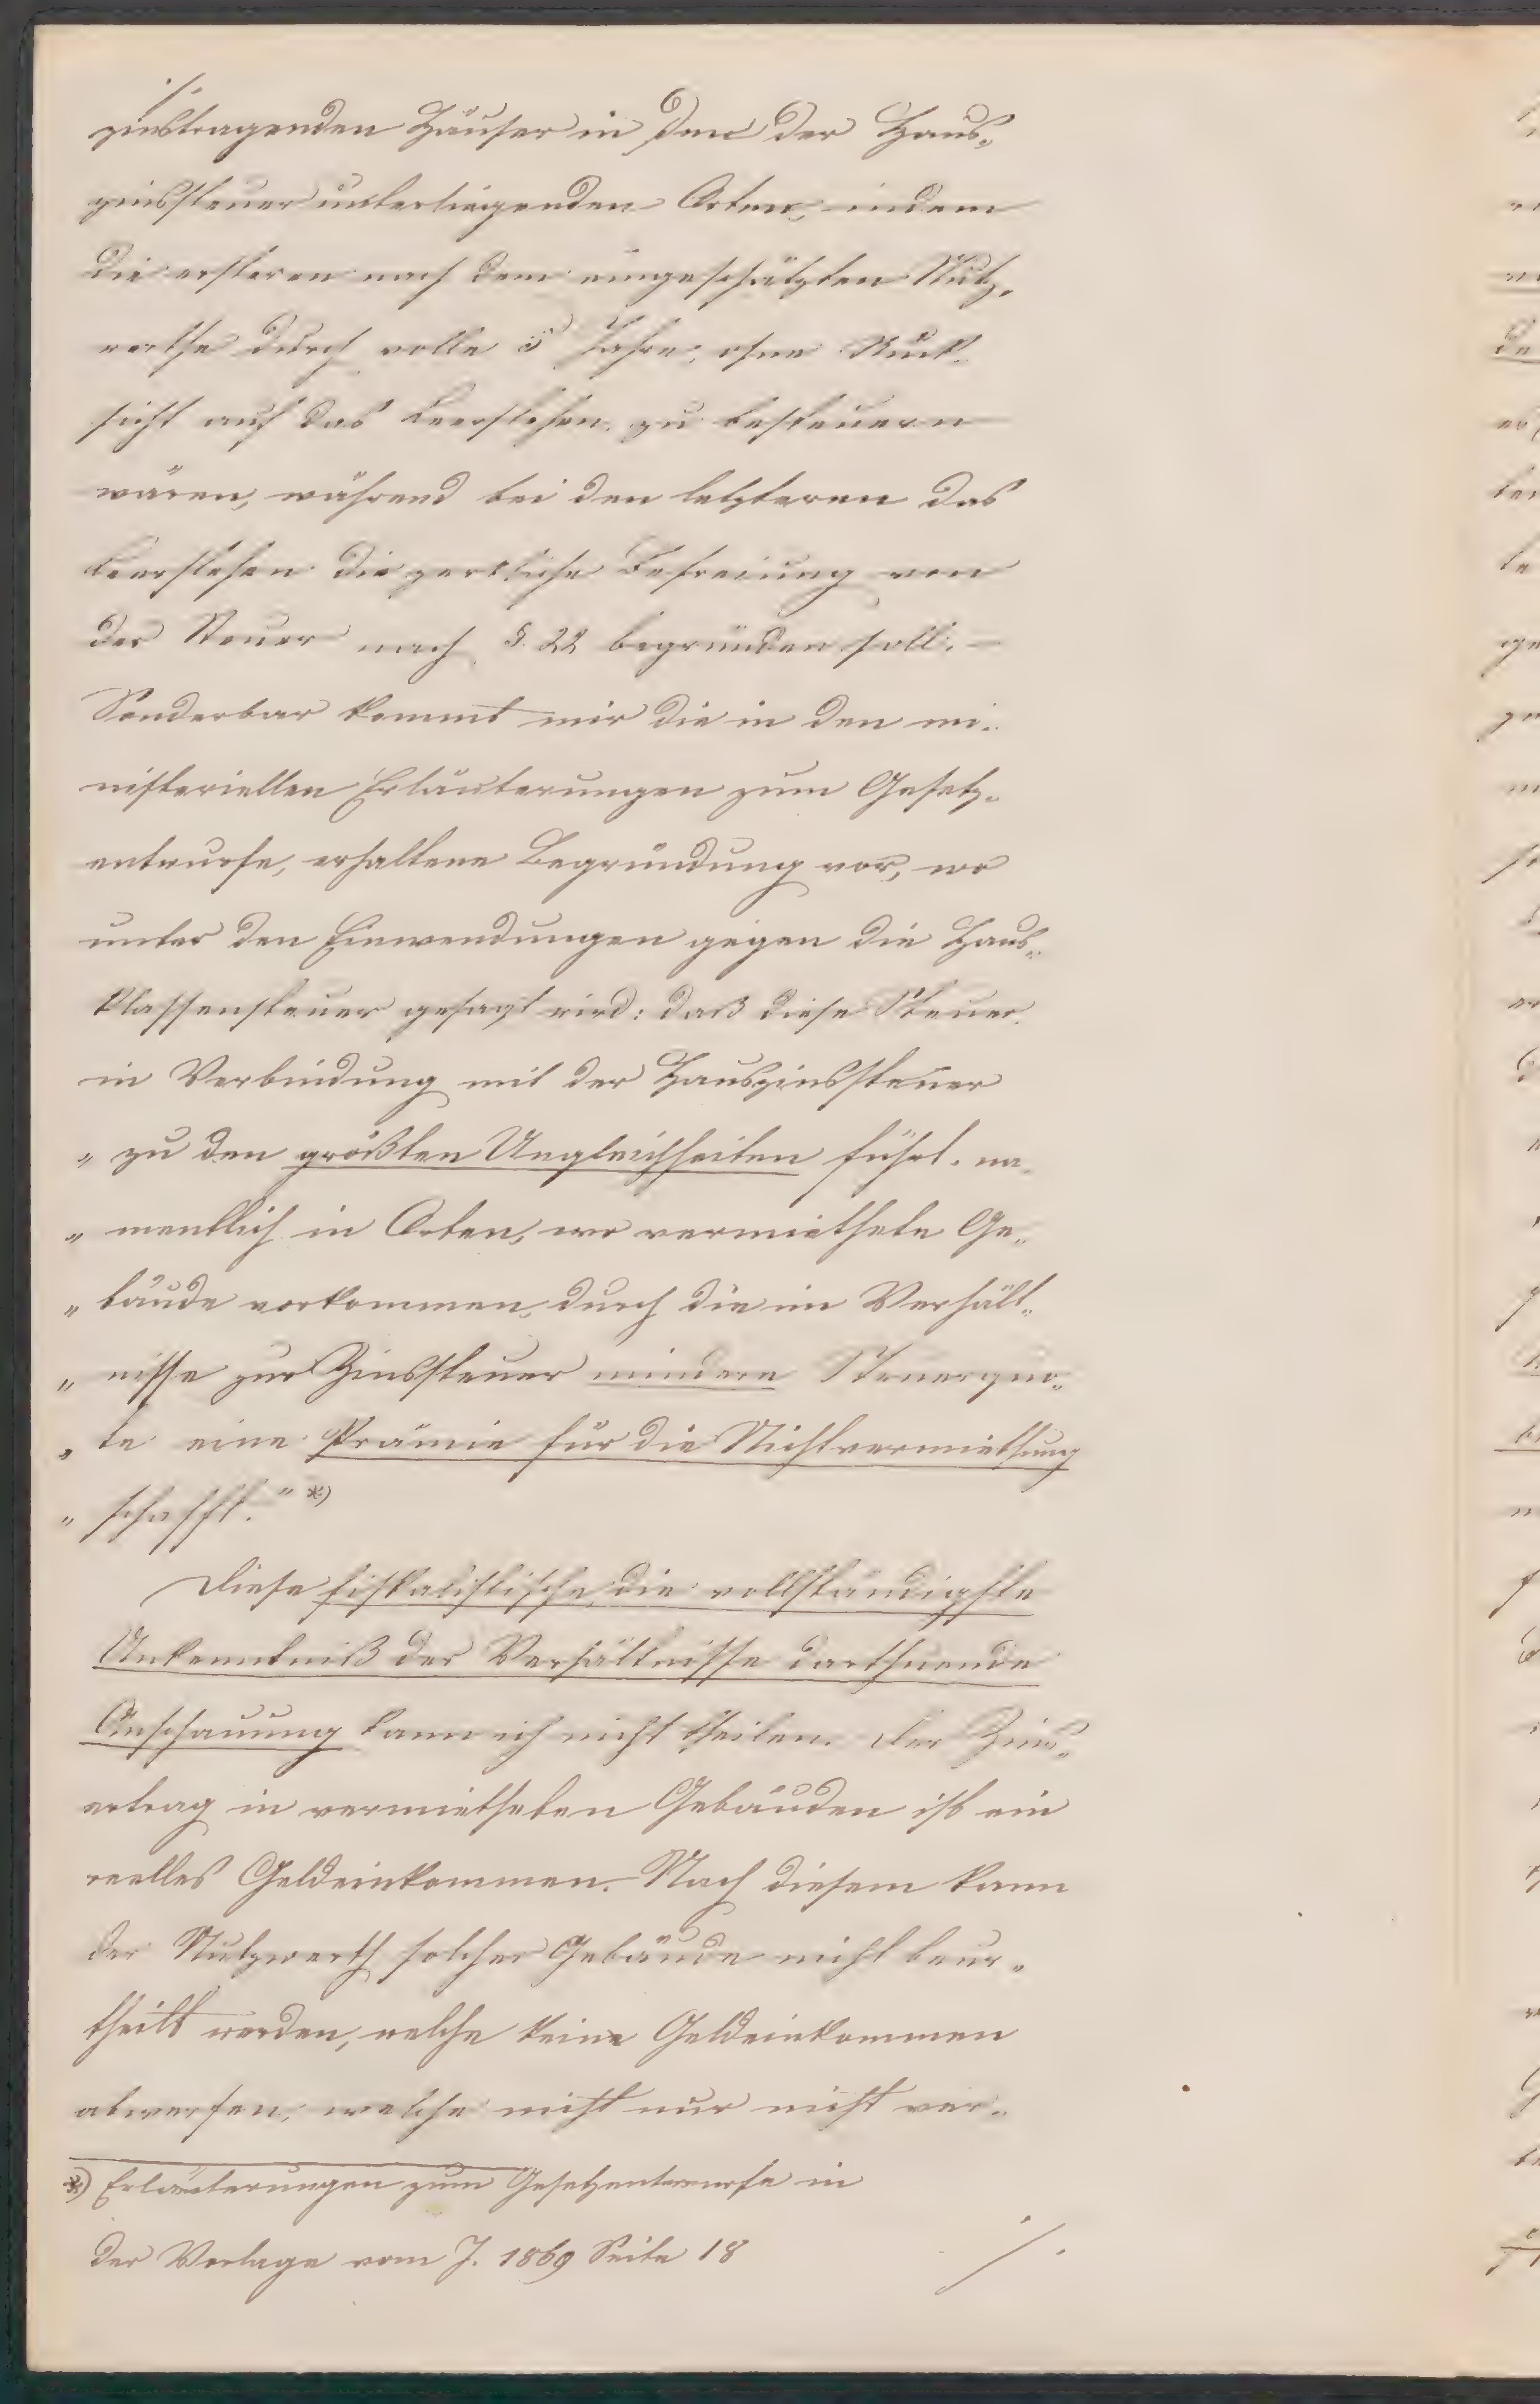 ./.
zinstragenden Häuser in den der Haus„
zinssteuer unterliegenden Orten, indem
die ersteren nach dem eingeschätzten Nutz„
werthe durch volle 5 Jahre, ohne Rück„
sicht auf das Leerstehen, zu besteuern
wären, während bei den letzteren das
Leerstehen die zeitliche Befreiung von
der Steuer nach §. 22 begründen soll. –
Sonderbar kommt mir die in den mi„
nisteriellen Erläuterungen zum Gesetz„
entwurfe, erhaltene Begründung vor, wo
unter den Einwendungen gegen die Haus„
klassensteuer gesagt wird: daß diese Steuer
in Verbindung mit der Hauszinssteuer
„ zu den größten Ungleichheiten führt, na„
„ mentlich in Orten, wo vermiethete Ge„
„ bäude vorkommen, durch die im Verhält„
„ nisse zur Zinssteuer mindere Steuerquo„
„ te eine Prämie für die Nichtvermiethung
„ schafft.“ *)
Diese fiskalistische, die vollständigste
Unkenntniß der Verhältnisse darthuende
Anschauung kann ich nicht theilen. Der Zins„
ertrag in vermietheten Gebäuden ist ein
reelles Geldeinkommen. Nach diesem kann
der Nutzwerth solcher Gebäude nicht beur„
theilt werden, welche keine Geldeinkommen
abwerfen, welche nicht nur nicht ver„
*) Erläuterungen zum Gesetzentwurfe in
der Vorlage vom J. 1869 Seite 18
./.